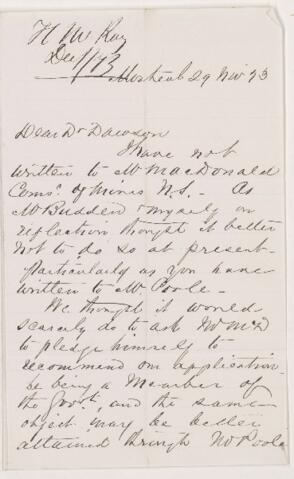 H McKay
Dec 1/73
Montreal 29 Nov 73
Dear Dr Dawson
I have not
written to Mr MacDonald
Comr. of Mines N.S. - As
Mr Budden & myself on
reflection thought it better
not to do so at present -
Particularly as you have
written to Mr Poole -
We thought it would
scarcely do to ask Mr McD
to pledge himself to
recommend our application
he being a Member of
the Govt. and the same
object may be better
attained through Mr Poole